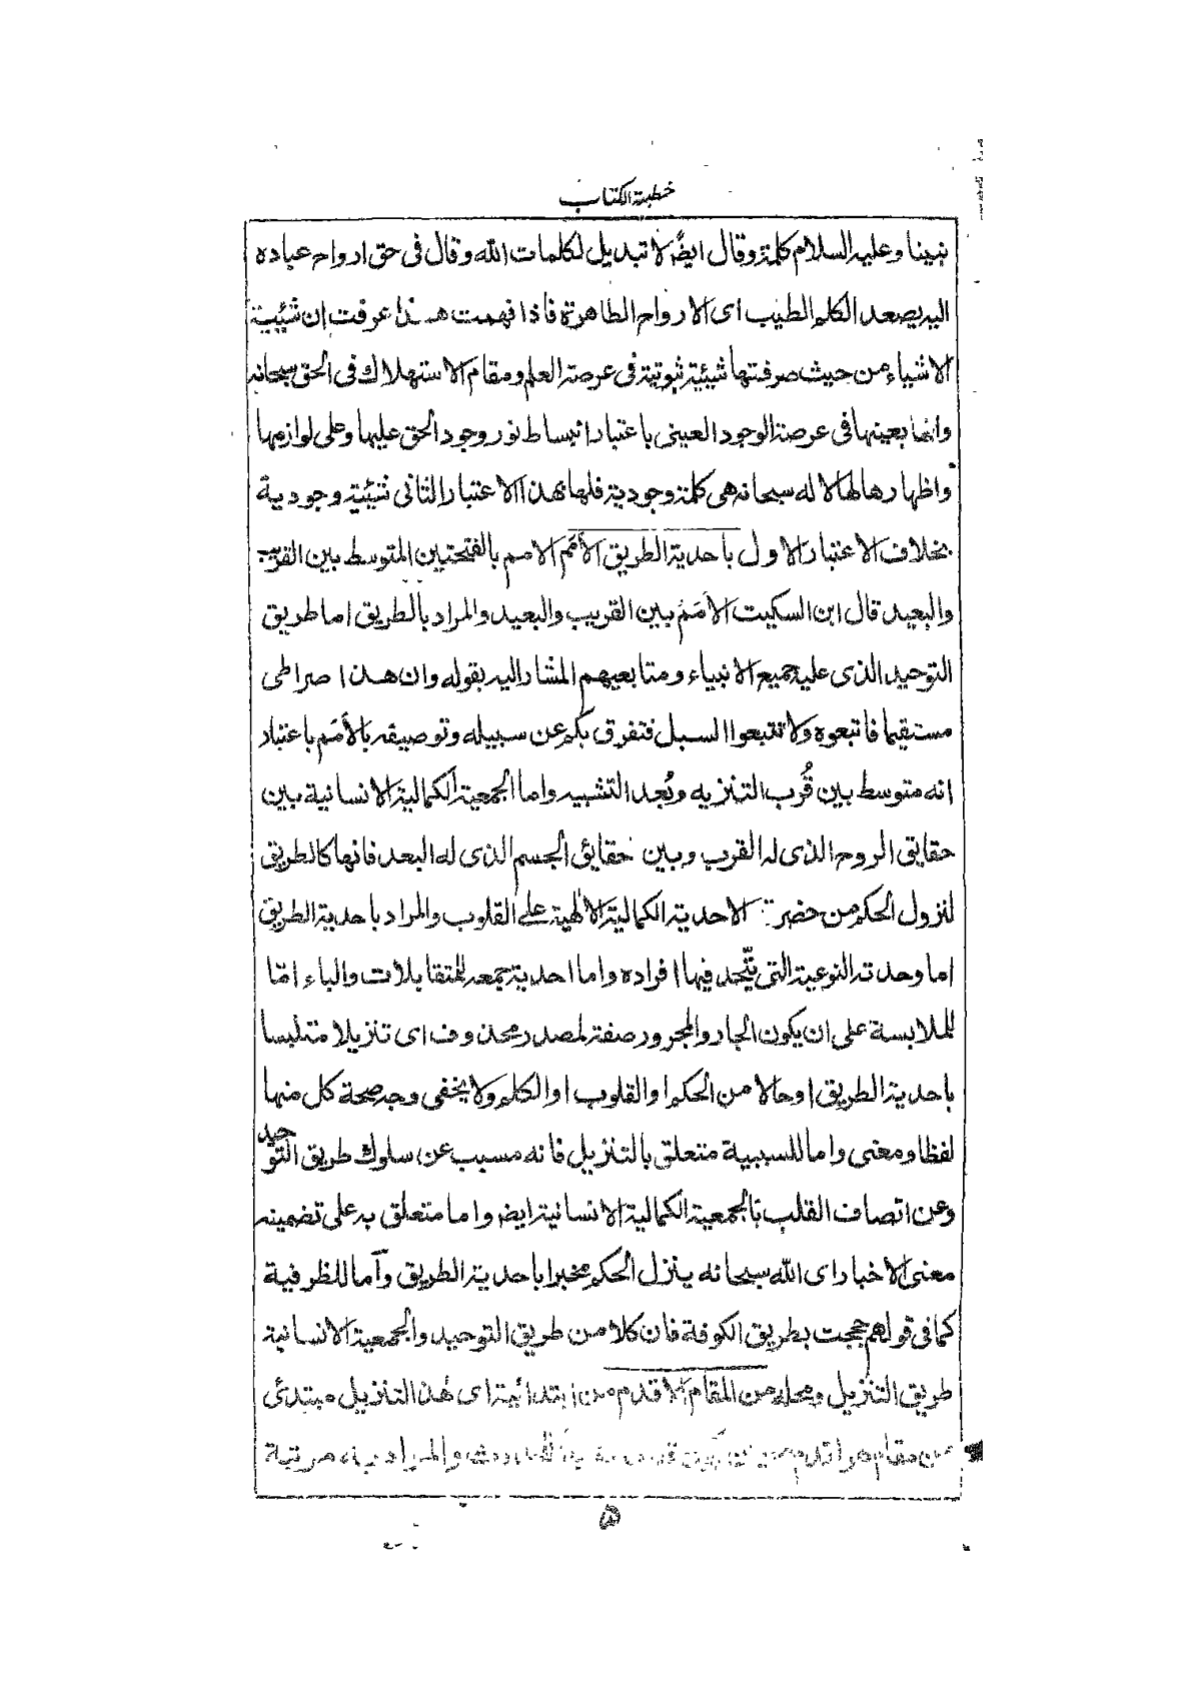 خطبة الكتاب
نبينا وعليه السلام كلمة وقال ايضا لا تبديل لكلمات الله وقال فى حق ارواح عباده
اليه يصعد الكلم الطيب اى الارواح الطاهرة فاذا فهمت هذا عرفت ان شيئية
الاشياء من حيث صرفتها شيئية ثبوتية فى عرصة العلم ومقام الاستهلاك فى الحق سبحانه
وانما بعينها فى عرصة الوجود العينى باعتبار انبساط نور وجود الحق عليها وعلى لوازمها
واظهارها لها لا له سبحانه هى كلمة وجودية فلها بهذا الاعتبار الثانى شيئية وجودية
بخلاف الاعتبار الاول باحدية الطريق الأمَم الامم بالفتحتين المتوسط بين القريب
والبعيد قال ابن السكيت الأمَم بين القريب والبعيد والمراد بالطريق اما طريق
التوحيد الذى عليه جميع الانبياء ومتابعيهم المشار اليه بقوله وان هذا صراطى
مستقيما فاتبعوه ولا تتبعوا السبل فتفرق بكم عن سبيله وتوصيفه بالأمَم باعتبار
انه متوسط بين قُرب التنزيه وبُعد التشبيه واما الجمعية الكمالية الانسانية بين
حقايق الروح الذى له القرب وبين حقايق الجسم الذى له البعد فانها كالطريق
لنزول الحكم من حضرة الاحدية الكمالية الالهية على القلوب والمراد باحدية الطريق
اما وحدته النوعية التى يتّحد فيها افراده واما احدية جمعه للمتقابلات والباء امّا
للملابسة على ان يكون الجار والمجرور صفة لمصدر محذوف اى تنزيلا متلبسا
باحدية الطريق او حالا من الحكم او القلوب او الكلم ولا يخفى وجه صحة كل منها
لفظا ومعنى واما للسببية متعلق بالتنزيل فانه مسبب عن سلوك طريق التوحيد
وعن اتصاف القلب بالجمعية الكمالية الانسانية ايضا واما متعلق به على تضمينه
معنى الاخبار اى الله سبحانه ينزل الحكم مخبرا باحدية الطريق وآما للظرفية
كما فى قولهم حججت بطريق الكوفة فان كلا من طريق التوحيد والجمعية الانسانية
طريق التنزيل ومحله من المقام الاقدم من ابتدائية اى هذا التنزيل مبتدئ
من مقام هو اقدم من ان يكون والمراد به مرتبة
۵